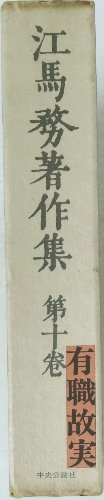 江馬務著作集
第十巻
有職故実
中央公論社